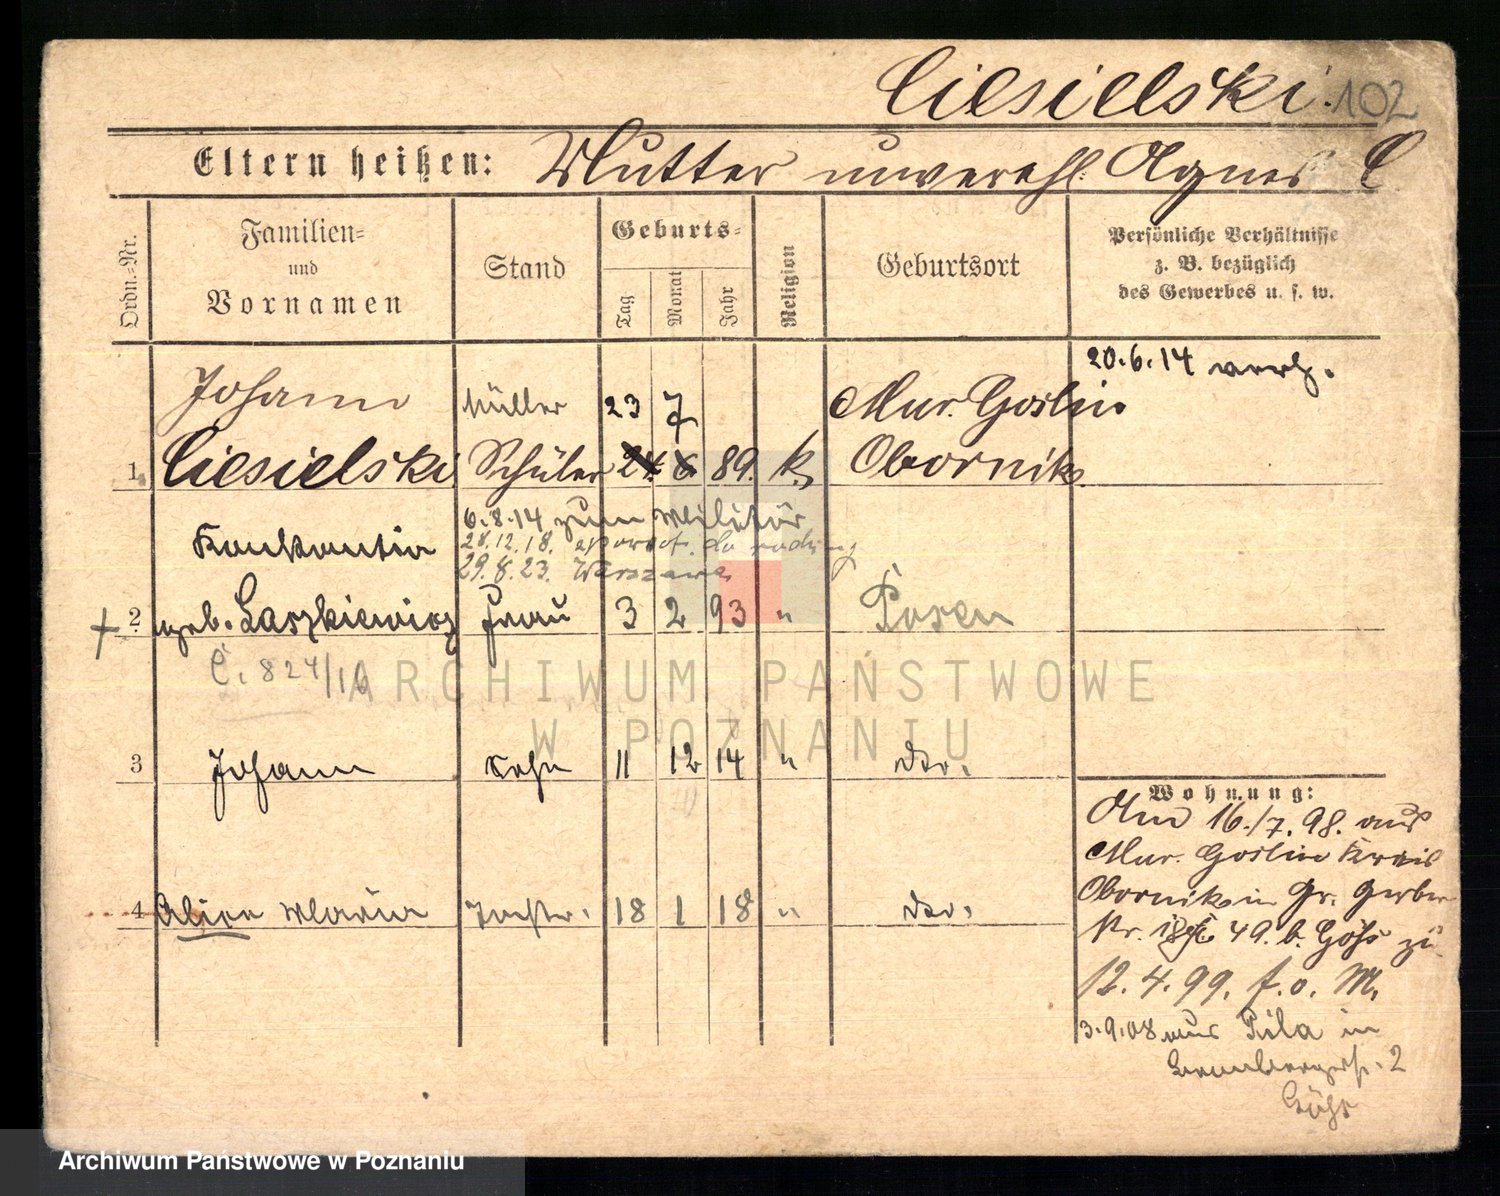 Ciesielski. 102
Eltern heißen: Mutter unverehl. Agnes C
Ordn.-Nr.
Familien-
und
Vornamen
Stand
Geburts-
Tag
Monat
Jahr
Religion
Geburtsort
Persönliche Verhältnisse
z. B. bezüglich
des Gewerbes u. s. w.
20.6.14 verh.
Johann Müller 23 7 Mur. Goslin
1. Ciesielski Schüler 24. 6 89. k. Obornik
6.8.14 zum Militär
Konstantia 28.12.18. do rodziny
29.8.23. Warszawa
+ 2. geb. Laszkiewicz Frau 3 2 93 " Posen
C. 824/16
3 Johann Sohn 11 12 14 " do.
4 Alice Maria Tochter. 18 1 18 " do.
Wohnung:
Am 16./7. 98. aus
Mur. Goslin Kreis
Obornik in Gr. Gerber
Str. 49. b. zu
12. 4. 99. f. o. M.
3.9.08 aus Pila in
2
ARCHIWUM PAŃSTWOWE
W POZNANIU
Archiwum Państwowe w Poznaniu